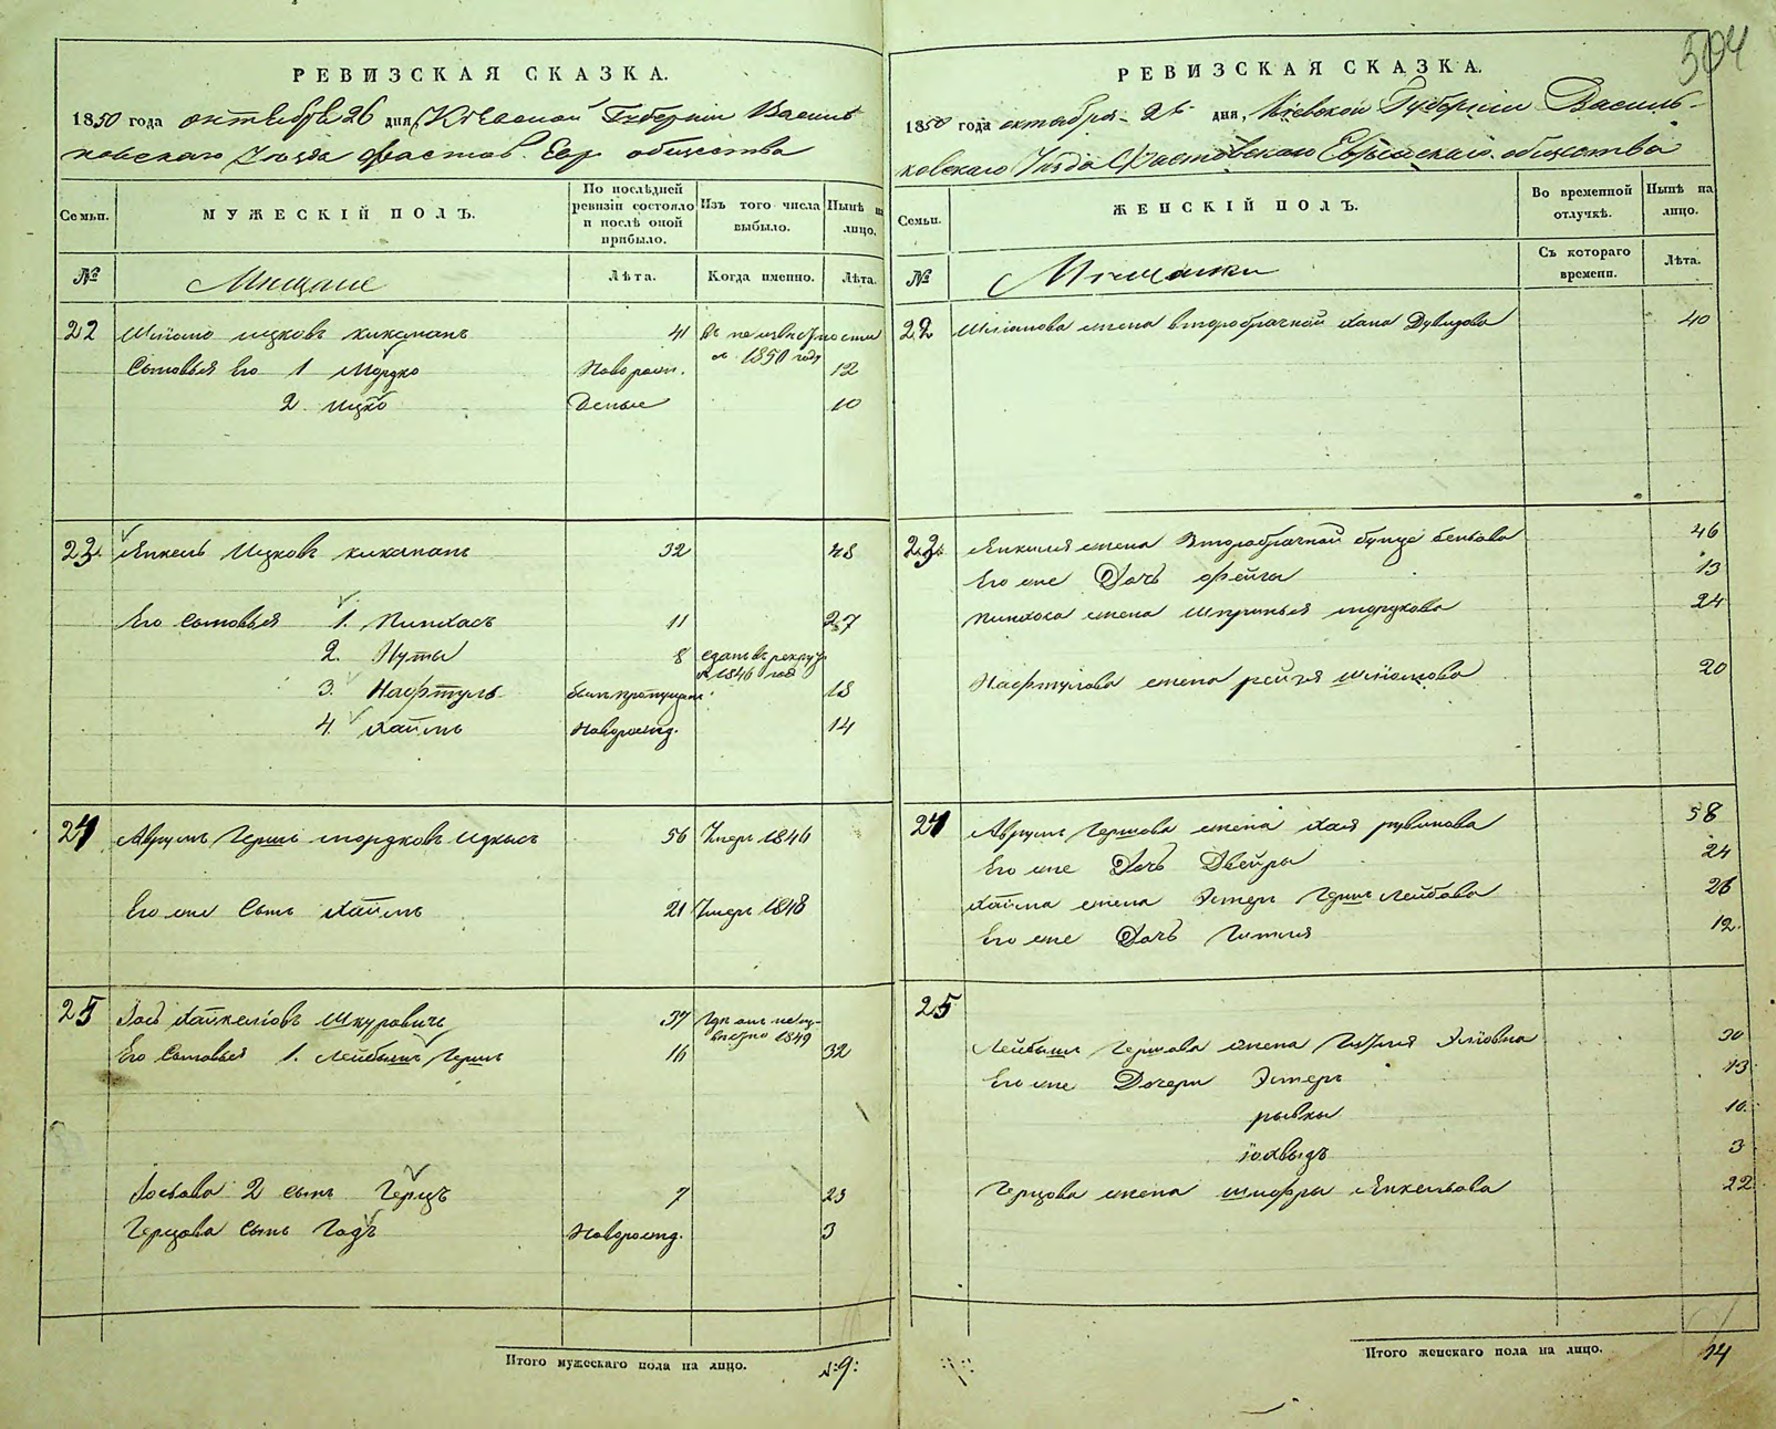 504
РЕВИЗСКАЯ СКАЗКА.
1850 года октября 26 дня, Кіевской Губерніи Василь
ковскаго Уѣзда Фастов. Евр. общества
Семьи.
МУЖЕСКІЙ ПОЛЪ.
По послѣдней ревизіи состояло и послѣ оной прибыло.
Изъ того числа выбыло.
Нынѣ на лицо.
№
Мещане
Лѣта.
Когда именно.
Лѣта.
22 Шліомо Ицковъ 41 въ неизвѣстности
с 1850 года
Сыновья его 1 Мордко Новорож. 12
2. Ицко 10
23. Янкель Ицковъ 32 48
Его Сыновья 1. Пинхасъ 11 27
2. Нуты 8 сданъ въ рекруты
в 1846 год
3. Нафтуль былъ пропущенъ 18
4. Хаимъ Новорожд. 14
24 Аврумъ Гершъ Мордковъ 56 Умеръ 1846
Его же Сынъ Хаимъ 21 Умеръ 1848
25 Іось Шкуровичъ 37 1849
Его Сыновья 1. Лейбышъ Гершъ 16 32
Іосьова 2 сынъ Герцъ 7 23
Герцова Сынъ Годъ Новорожд. 3
Итого мужескаго пола на лицо. 9:
РЕВИЗСКАЯ СКАЗКА.
1850 года октября 26 дня, Кіевской Губерніи Василь-
ковскаго Уѣзда Фастовскаго Еврейскаго общества
Семьи.
ЖЕНСКІЙ ПОЛЪ.
Во временной отлучкѣ.
Нынѣ на лицо.
№
Мещанки
Съ котораго времени.
Лѣта.
22 Шліомова жена второбрачной Хана Дувидова 40
23. Янкеля жена Второбрачной 46
Его же Дочь Фейга 13
Пинхоса жена Шпринця Мордкова 24
Нафтулова жена рейзя Шліомова 20
24 Аврумъ Гершова жена Хая рувинова 58
Его же Дочь Двейра 24
Хаима жена Эстеръ Лейбова 26
Его же Дочь Гитля 12.
25
Лейбышъ Гершова жена Гитля 30
Его же Дочери Эстеръ 13
рывка 10.
іохвыдъ 3
Герцова жена шифра Янкелева 22
Итого женскаго пола на лицо. 14